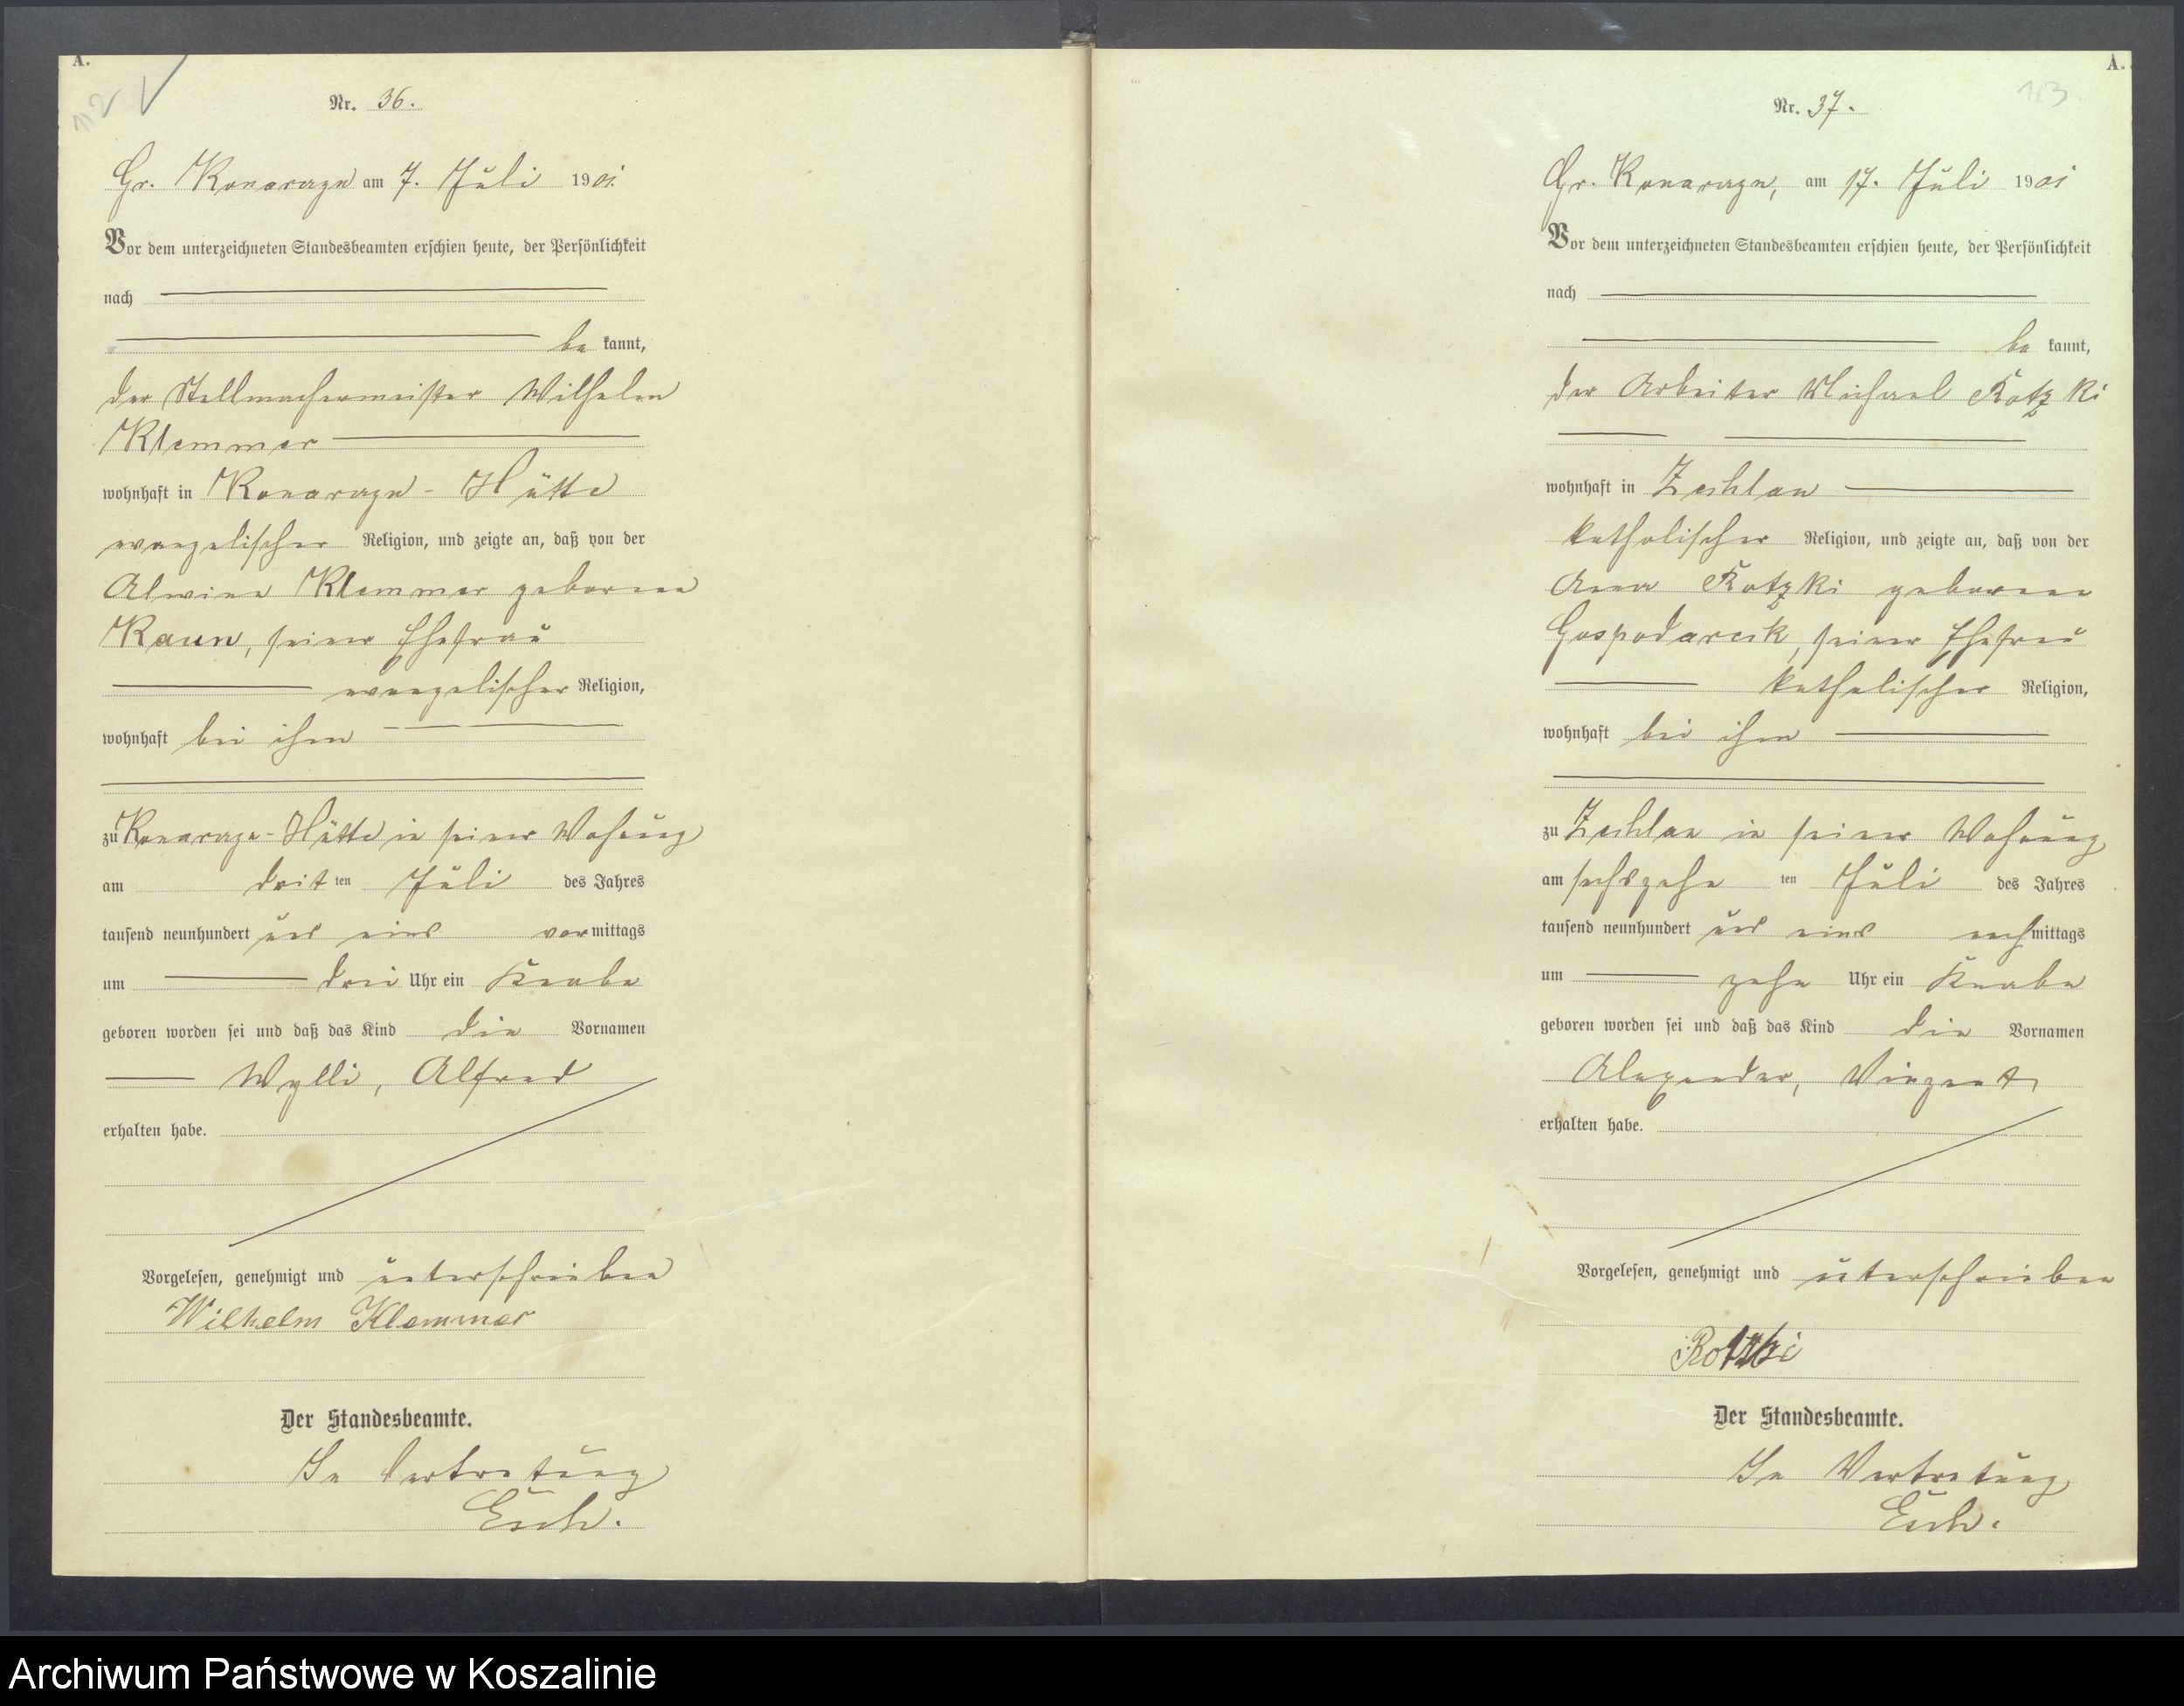 A.
112
Nr. 36.
Gr. Konarzyn am 7. Juli 1901.
Vor dem unterzeichneten Standesbeamten erschien heute, der Persönlichkeit
nach
be kannt,
der Stellmachermeister Wilhelm
Klemmer
wohnhaft in Konarzyn - Hütte
evangelischer Religion, und zeigte an, daß von der
Alwine Klemmer geborene
Raun, seiner Ehefrau
evangelischer Religion,
wohnhaft bei ihm
zu Konarzyn-Hütte in seiner Wohnung
am dritten Juli des Jahres
tausend neunhundert und eins vormittags
um drei Uhr ein Knabe
geboren worden sei und daß das Kind die Vornamen
Wylli, Alfred
erhalten habe.
Vorgelesen, genehmigt und unterschrieben
Wilhelm Klemmer
Der Standesbeamte.
In Vertretung
A.
113
Nr. 37.
Gr. Konarzyn, am 17. Juli 1901
Vor dem unterzeichneten Standesbeamten erschien heute, der Persönlichkeit
nach
be kannt,
der Arbeiter Michael Rotzki
wohnhaft in Zechlau
katholischer Religion, und zeigte an, daß von der
Anna Rotzki geborene
Gospodarek, seiner Ehefrau
katholischer Religion,
wohnhaft bei ihm
zu Zechlau in seiner Wohnung
am sechszehnten Juli des Jahres
tausend neunhundert und eins nachmittags
um zehn Uhr ein Knabe
geboren worden sei und daß das Kind die Vornamen
Alexander, Vinzent
erhalten habe.
Vorgelesen, genehmigt und unterschrieben
Rotzki
Der Standesbeamte.
In Vertretung
Archiwum Państwowe w Koszalinie